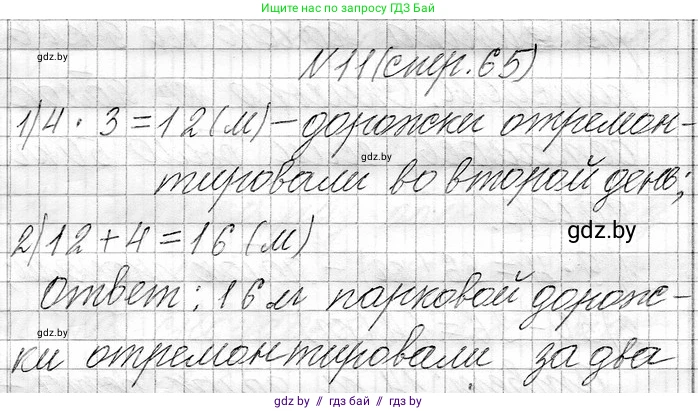 Ищите нас по запросу ГДЗ Бай
gdz.by
N11(стр.65)
1)4 · 3=12(м)-дорожски отремон-
gdz.by
тировали во второй день;
2)12+4=16(м)
gdz.by
Ответ: 16м парковой дорож-
gdz.by
ки отремонтировали за два
gdz.by // gdz.by // gdz.by